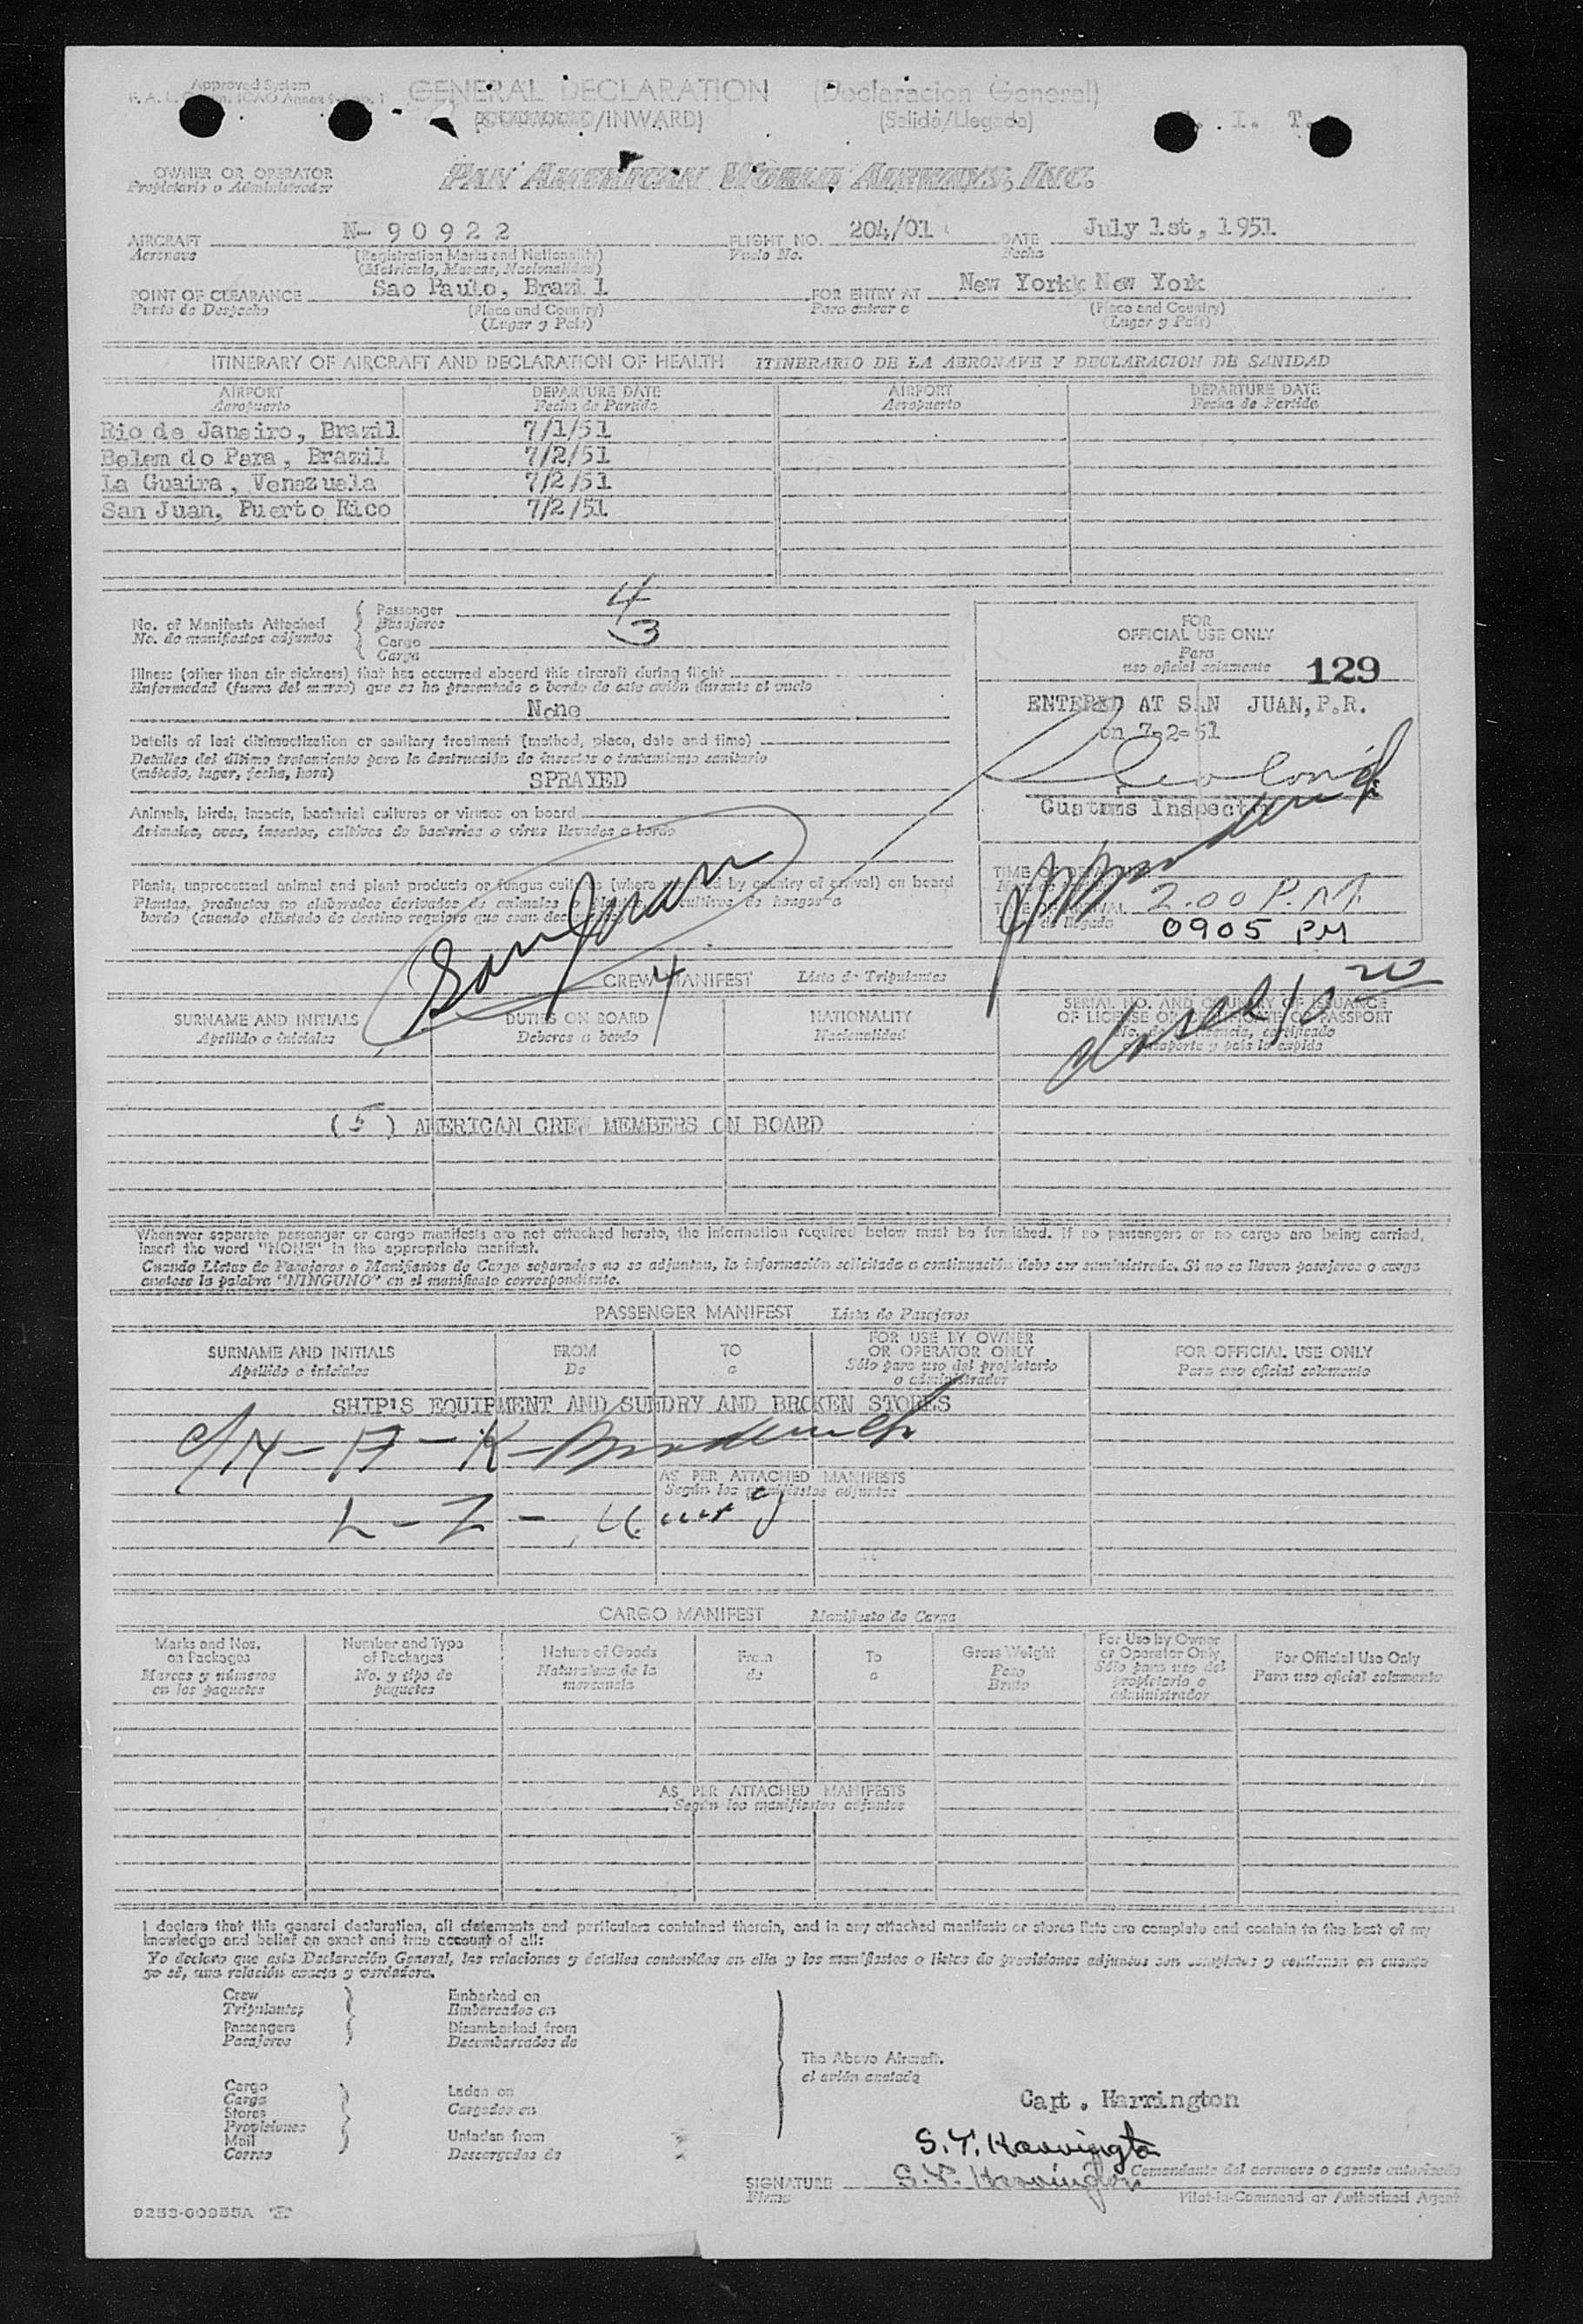 Approved System
GENERAL DECLARATION (Declaracion General)
/INWARD) (Salida/Llegada) I. T.
OWNER OR OPERATOR
Propietario o Administrador
PAN AMERICAN WORLD AIRWAYS, INC.
AIRCRAFT N-90922 FLIGHT NO. 204/01 DATE July 1st, 1951
Aeronave (Registration Marks and Nationality) Vuelo No. Fecha
(Matricula, Marcas, Nacionalidad)
POINT OF CLEARANCE Sao Paulo, Brazil FOR ENTRY AT New Yorkk New York
Punto de Despacho (Place and Country) Para entrar a (Place and Country)
(Lugar y Pais) (Lugar y Pais)
ITINERARY OF AIRCRAFT AND DECLARATION OF HEALTH ITINERARIO DE LA AERONAVE Y DECLARACION DE SANIDAD
AIRPORT DEPARTURE DATE AIRPORT DEPARTURE DATE
Aeropuerto Fecha de Partida Aeropuerto Fecha de Partida
Rio de Janeiro, Brazil 7/1/51
Belem do Para, Brazil 7/2/51
La Guaira, Venezuela 7/2/51
San Juan, Puerto Rico 7/2/51
No. of Manifests Attached
No. de manifiestos adjuntos
Passenger 4
Pasajeros
Cargo 3
Carga
Illness (other than air sickness) that has occurred aboard this aircraft during flight
Enfermedad (fuera del mareo) que se ha presentado a bordo de este avión durante el vuelo
None
Details of last disinsectization or sanitary treatment (method, place, date and time)
Detalles del último tratamiento para la destrucción de insectos o tratamiento sanitario
(método, lugar, fecha, hora)
SPRAYED
Animals, birds, insects, bacterial cultures or viruses on board
Animales, aves, insectos, cultivos de bacterias o virus llevados a bordo
Plants, unprocessed animal and plant products or fungus cultures (where required by country of arrival) on board
Plantas, productos no elaborados derivados de animales o cultivos de hongos a
bordo (cuando el Estado de destino requiere que sean
San Juan
FOR
OFFICIAL USE ONLY
Para
uso oficial solamente 129
ENTERED AT SAN JUAN, P.R.
on 7-2-51
Customs Inspector
TIME OF DEPARTURE
2.00 P.M.
TIME OF ARRIVAL
0905 PM
CREW MANIFEST Lista de Tripulantes
4
SURNAME AND INITIALS DUTIES ON BOARD NATIONALITY SERIAL NO. AND COUNTRY OF ISSUANCE
OF LICENSE OR CERTIFICATE OR PASSPORT
Apellido e iniciales Deberes a bordo Nacionalidad
(5) AMERICAN CREW MEMBERS ON BOARD
Whenever separate passenger or cargo manifests are not attached hereto, the information required below must be furnished. If no passengers or no cargo are being carried,
insert the word "NONE" in the appropriate manifest.
Cuando Listas de Pasajeros o Manifiestos de Carga separados no se adjuntan, la información solicitada a continuación debe ser suministrada. Si no se llevan pasajeros o carga
anotese la palabra "NINGUNO" en el manifiesto correspondiente.
PASSENGER MANIFEST Lista de Pasajeros
SURNAME AND INITIALS FROM TO FOR USE BY OWNER
OR OPERATOR ONLY FOR OFFICIAL USE ONLY
Apellido e iniciales De a Sólo para uso del propietario
o administrador Para uso oficial solamente
SHIP'S EQUIPMENT AND SUNDRY AND BROKEN STORES
AS PER ATTACHED MANIFESTS
Según los manifiestos adjuntos
L - Z -
CARGO MANIFEST Manifiesto de Carga
Marks and Nos.
on Packages
Marcas y números
en los paquetes
Number and Type
of Packages
No. y tipo de
paquetes
Nature of Goods
Naturaleza de la
mercancia
From
de
To
a
Gross Weight
Peso
Bruto
For Use by Owner
or Operator Only
Sólo para uso del
propietario o
administrador
For Official Use Only
Para uso oficial solamente
AS PER ATTACHED MANIFESTS
Según los manifiestos adjuntos
I declare that this general declaration, all statements and particulars contained therein, and in any attached manifests or stores lists are complete and contain to the best of my
knowledge and belief an exact and true account of all:
Yo declaro que esta Declaración General, las relaciones y detalles contenidos en ella y los manifiestos o listas de provisiones adjuntos son completos y contienen en cuanto
yo sé, una relación exacta y verdadera.
Crew
Tripulantes
Passengers
Pasajeros
Embarked on
Embarcados en
Disembarked from
Desembarcados de
Cargo
Carga
Stores
Provisiones
Mail
Correo
Laden on
Cargados en
Unladen from
Descargados de
The Above Aircraft.
el avión anotado
Capt. Harrington
S.T. Harrington
S.T. Harrington
SIGNATURE Comandante del aeronave o agente autorizado
Firma Pilot-in-Command or Authorized Agent
9253-60955A